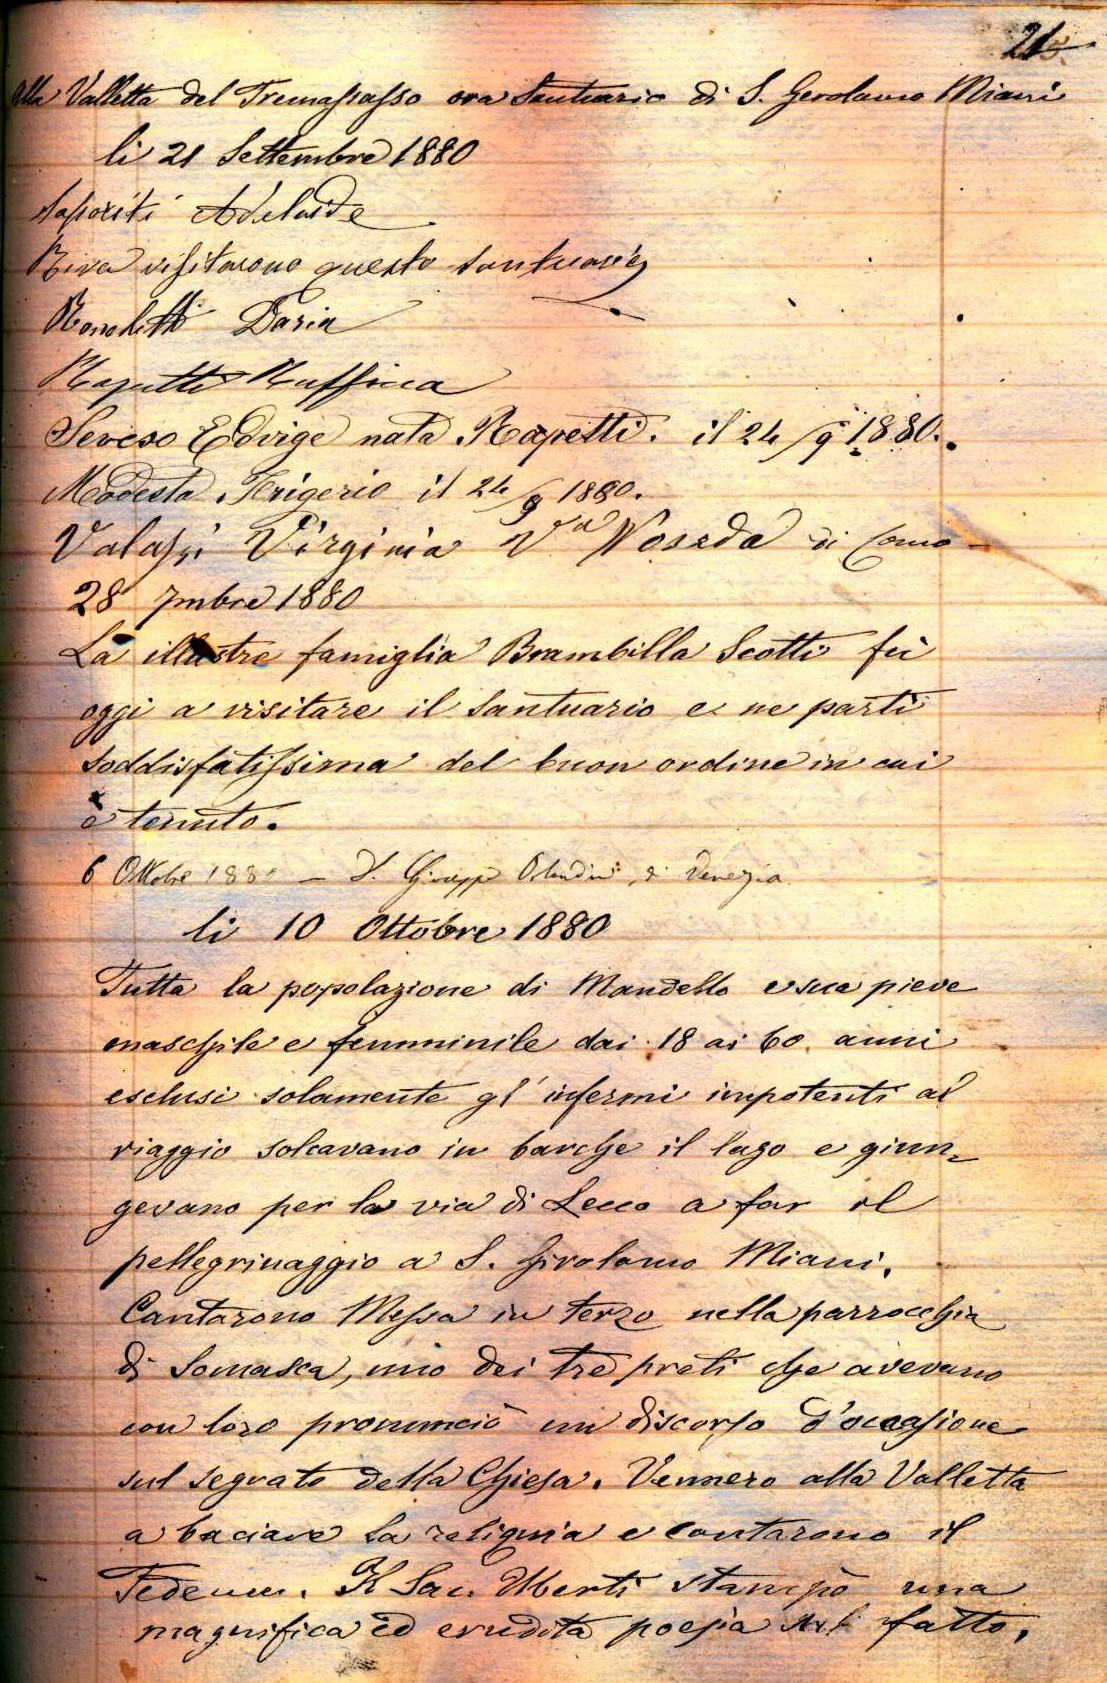 21
Alla Valletta del Tremasasso ora Santuario di S. Gerolamo Miani
li 21 Settembre 1880
Adelaide
Riva visitarono questo santuario
Ronchetti Daria
Rapetti Ruffina
Seveso Edvige nata Rapetti. il 24/9 1880.
Modesta Frigerio il 24/9 1880.
Valassi Virginia Va Noseda di Como
28 7mbre 1880
La illustre famiglia Brambilla Scotti fù
oggi a visitare il santuario e ne partì
soddisfatissima del buon ordine in cui
è tenuto.
6 Ottobre 1880 — D. Giuseppe Orlandini di Venezia
li 10 Ottobre 1880
Tutta la popolazione di Mandello e sua pieve
maschile e femminile dai 18 ai 60 anni
esclusi solamente gl'infermi impotenti al
viaggio solcavano in barche il lago e giun-
gevano per la via di Lecco a far il
pellegrinaggio a S. Girolamo Miani.
Cantarono Messa in terzo nella parrocchia
di Somasca, uno dei tre preti che avevano
con loro pronunciò un discorso d'occasione
sul segrato della Chiesa. Vennero alla Valletta
a baciare la reliquia e cantarono il
Tedeum. Il Sac. Uberti stampò una
magnifica ed erudita poesia sul fatto.